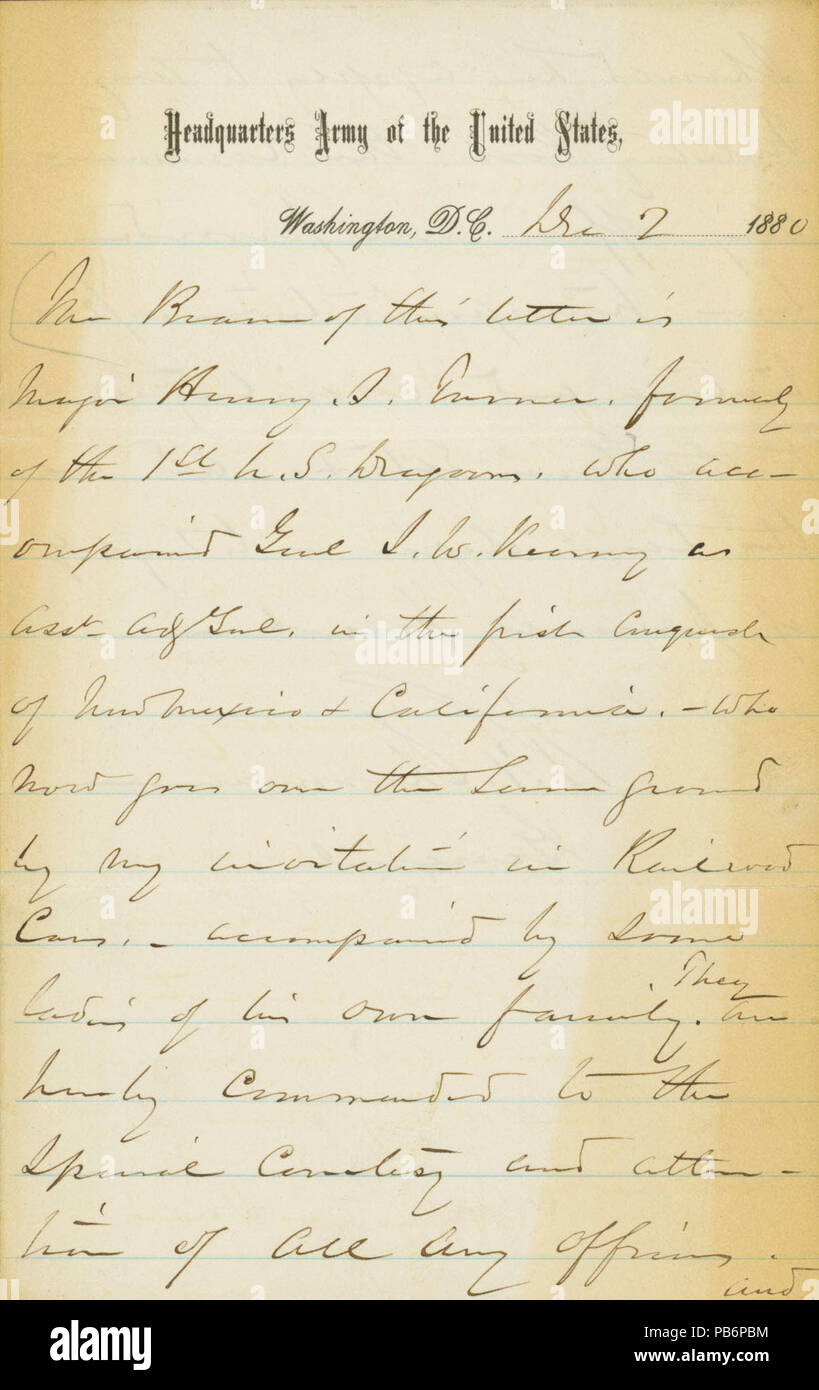 Headquarters Army of the United States,
Washington, D.C. Dec 7 1880
The Bearer of this letter is
Major Henry S. Turner, formerly
of the 1st U.S. Dragoons, who acc-
ompanied Genl S. W. Kearny as
Asst Adj Genl. in the first conquest
of New Mexico & California. - who
now goes over the same ground
by my invitation in Railroad
Cars, - accompanied by some
ladies of his own family. They are
hereby commended to the
Special Courtesy and atten-
tion of all Army officers.
and
alamy
Image ID: PB6PBM
www.alamy.com